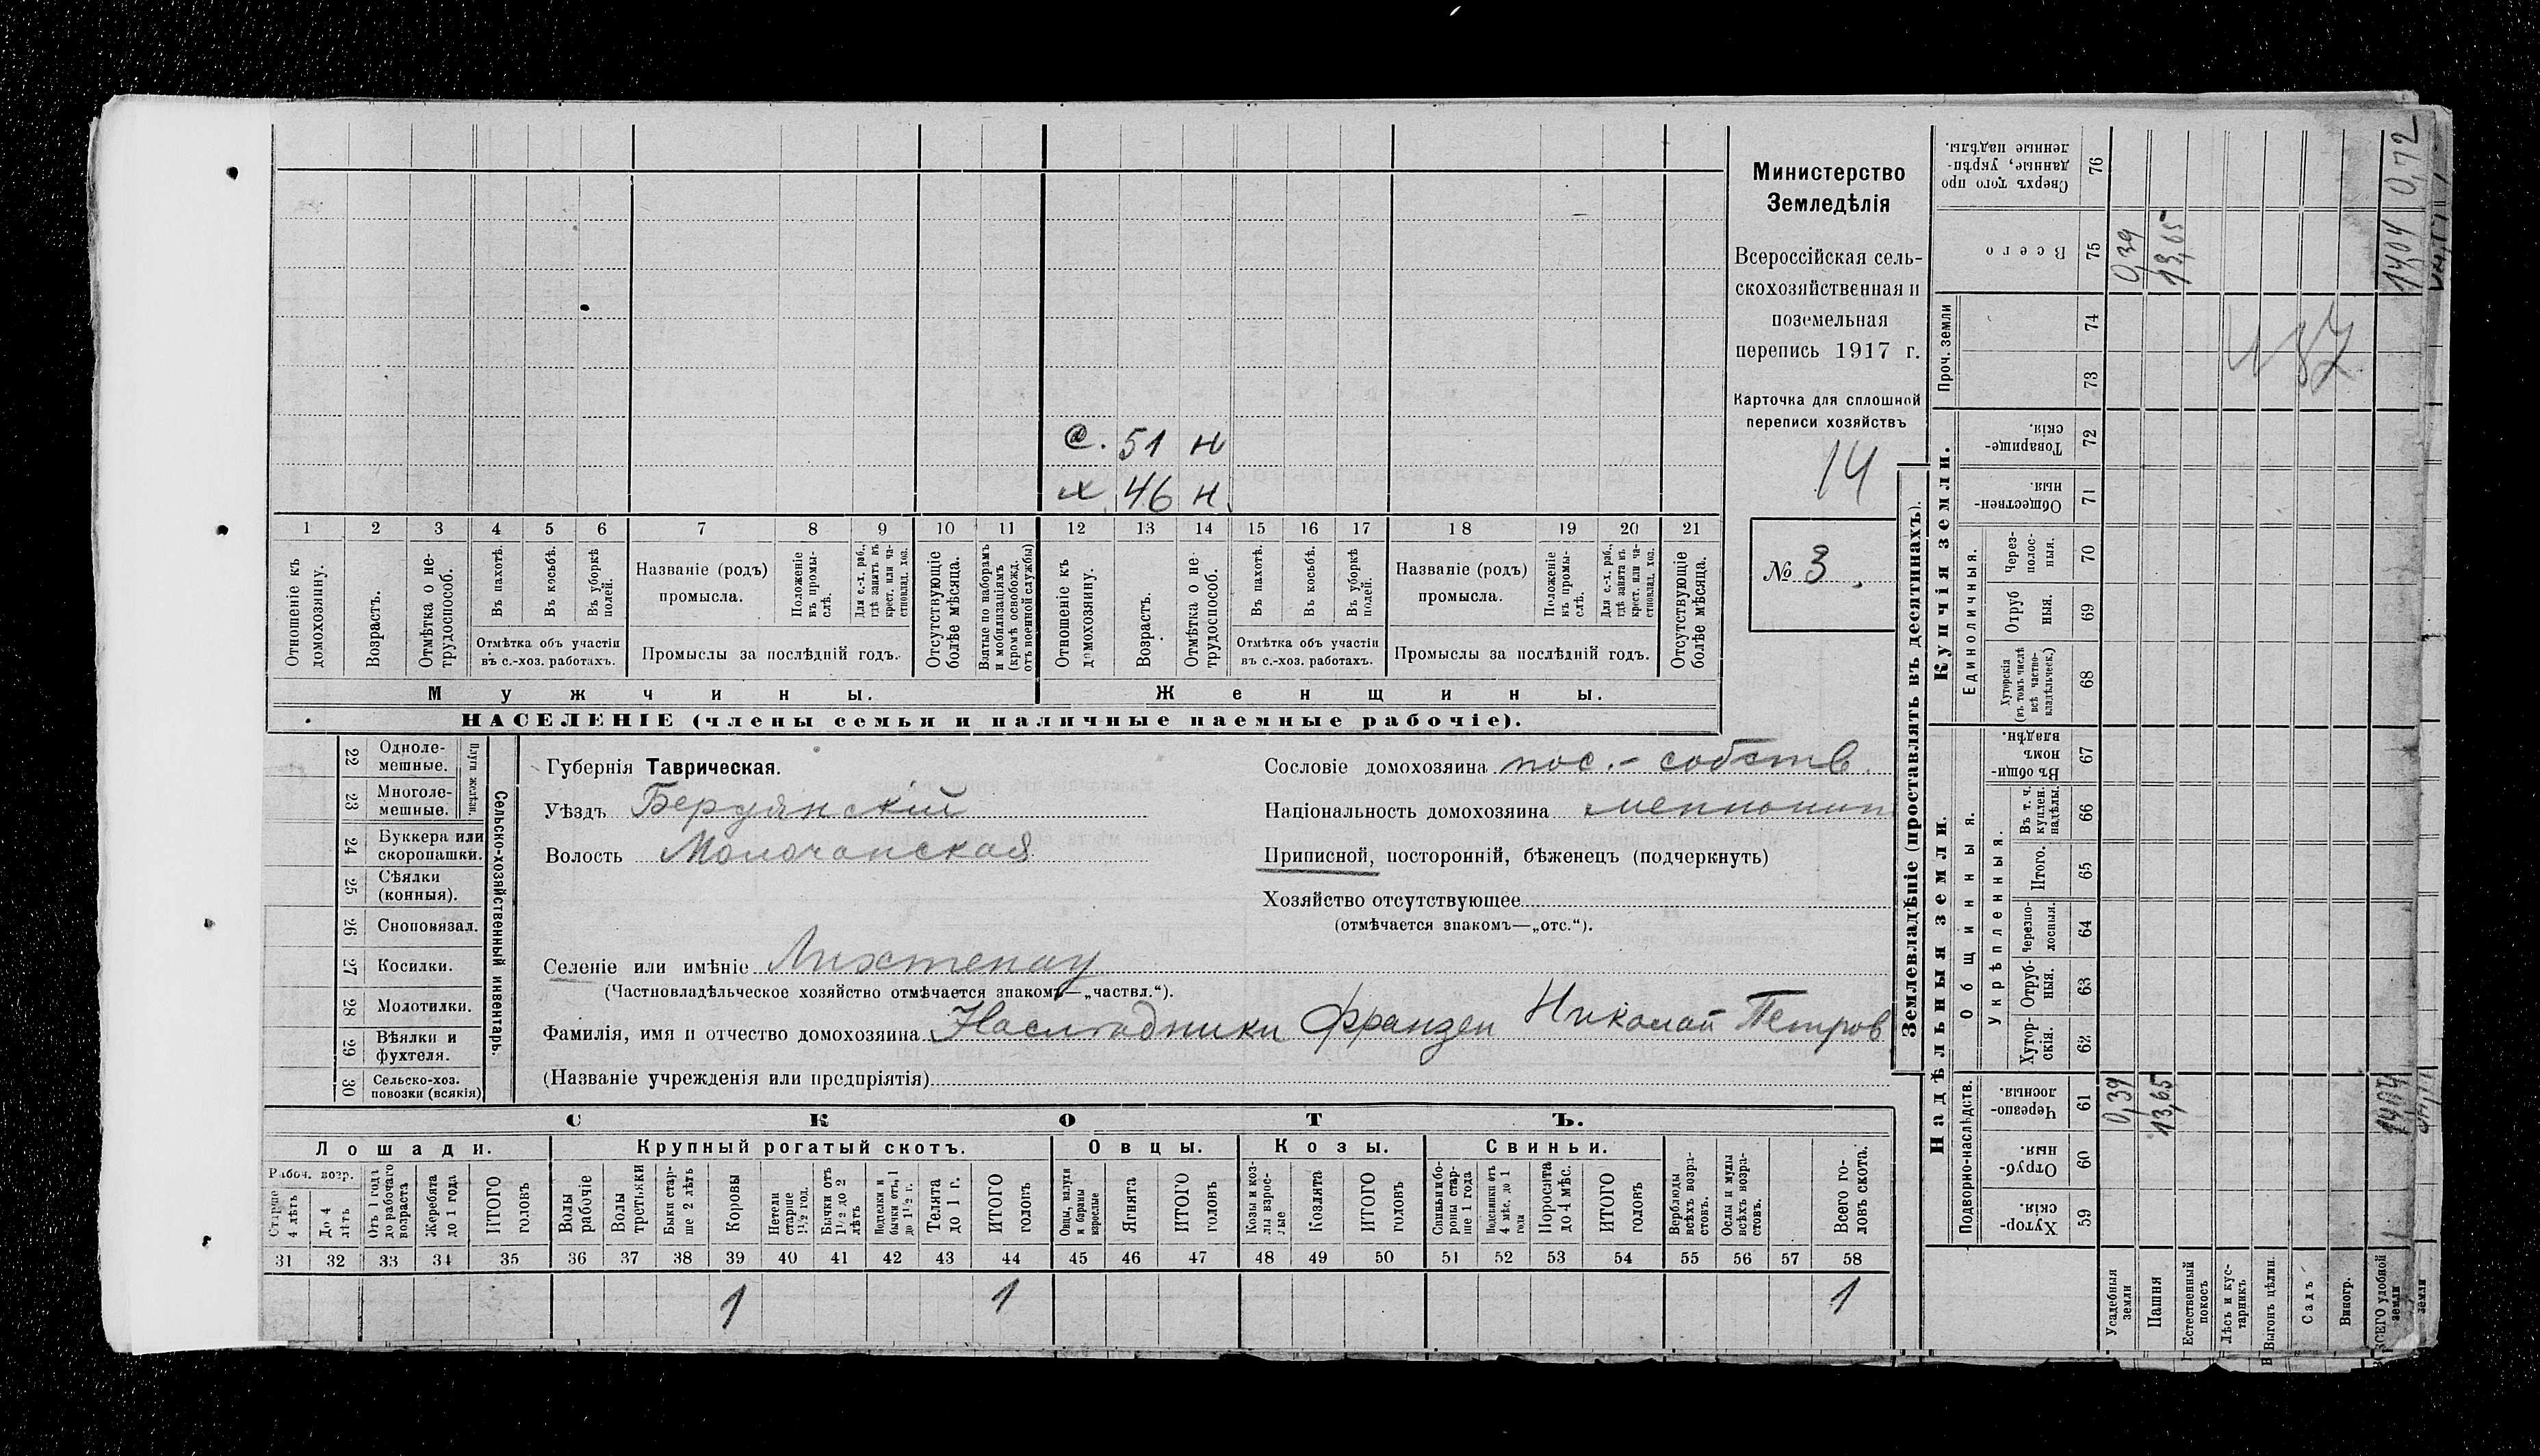 е. 51 н
х 46 н.
1 2 3 4 5 6 7 8 9 10 11 12 13 14 15 16 17 18 19 20 21
Отношеніе къ домохозяину.
Возрастъ.
Отмѣтка о не-трудоспособ.
Въ пахотѣ.
Въ косьбѣ.
Въ уборкѣ полей.
Отмѣтка объ участіи
въ с.-хоз. работахъ.
Названіе (родъ)
промысла.
Положеніе въ промы-слѣ.
Для с.-х. раб., гдѣ занятъ въ крест. или ча-стновлад. хоз.
Промыслы за послѣдній годъ.
Отсутствующіе болѣе мѣсяца.
Взятые по наборамъ и мобилизаціямъ (кромѣ освобожд. отъ военной службы)
Отношеніе къ домохозяину.
Возрастъ.
Отмѣтка о не-трудоспособ.
Въ пахотѣ.
Въ косьбѣ.
Въ уборкѣ полей.
Отмѣтка объ участіи
въ с.-хоз. работахъ.
Названіе (родъ)
промысла.
Положеніе въ промы-слѣ.
Для с.-х. раб., гдѣ занята въ крест. или ча-стновлад. хоз.
Промыслы за послѣдній годъ.
Отсутствующіе болѣе мѣсяца.
Мужчины.
Женщины.
НАСЕЛЕНІЕ (члены семьи и наличные наемные рабочіе).
Министерство
Земледѣлія
Всероссійская сель-
скохозяйственная и
поземельная
перепись 1917 г.
Карточка для сплошной
переписи хозяйствъ
14
№ 3.
Сельско-хозяйственный инвентарь.
Плуги желѣзн.
22 Одноле-мешные.
23 Многоле-мешные.
24 Буккера или скоропашки.
25 Сѣялки (конныя).
26 Сноповязал.
27 Косилки.
28 Молотилки.
29 Вѣялки и фухтеля.
30 Сельско-хоз. повозки (всякія)
Губернія Таврическая.
Уѣздъ Бердянскій
Волость Молочанская
Селеніе или имѣніе Лихтенау
(Частновладѣльческое хозяйство отмѣчается знакомъ—„частвл.“).
Фамилія, имя и отчество домохозяина Наслѣдники Франзен Николай Петров
(Названіе учрежденія или предпріятія)
Сословіе домохозяина пос.- собств.
Національность домохозяина меннонит
Приписной, посторонній, бѣженецъ (подчеркнуть)
Хозяйство отсутствующее
(отмѣчается знакомъ—„отс.“).
СКОТЪ.
Лошади.
Крупный рогатый скотъ.
Овцы.
Козы.
Свиньи.
Рабоч. возр.
Старше 4 лѣтъ
До 4 лѣтъ
Отъ 1 года до рабочаго возраста
Жеребята до 1 года
ИТОГО головъ
Волы рабочіе
Волы третьяки
Быки стар-ше 2 лѣтъ
Коровы
Нетели старше 1½ год.
Бычки отъ 1½ до 2 лѣтъ
Подтелки и бычки отъ 1 до 1½ г.
Телята до 1 г.
ИТОГО головъ
Овцы, валухи и бараны взрослые
Ягнята
ИТОГО головъ
Козы и коз-лы взрос-лые
Козлята
ИТОГО головъ
Свиньи и бо-ровы стар-ше 1 года
Подсвинки отъ 4 мѣс. до 1 года
Поросята до 4 мѣс.
ИТОГО головъ
Верблюды всѣхъ возра-стовъ.
Ослы и мулы всѣхъ возра-стовъ.
Всего го-ловъ скота.
31 32 33 34 35 36 37 38 39 40 41 42 43 44 45 46 47 48 49 50 51 52 53 54 55 56 57 58
1 1 1
Землевладѣніе (проставлять въ десятинахъ).
Надѣльныя земли.
Купчія земли.
Проч. земли
Подворно-наслѣдств.
Общинныя.
Укрѣпленныя.
Единоличныя.
Хутор-скія. 59
Отруб-ныя. 60
Черезпо-лосныя. 61
Хутор-скія. 62
Отруб-ныя. 63
Черезпо-лосныя. 64
Итого. 65
Въ т. ч. куплен. надѣлы. 66
Въ общин-номъ владѣн. 67
Хуторскія (въ томъ числѣ всѣ частно-владѣльческ.) 68
Отруб ныя. 69
Через-полос-ныя. 70
Обществен-ныя. 71
Товарище-скія. 72
73
74
Всего 75
Сверхъ того про данные, укрѣп-ленные надѣлы. 76
Усадебныя земли 0,39 0,39
Пашня 13,65 13,65
Естественный покосъ
Лѣсъ и кус-тарникъ
Выгонъ цѣлин.
Садъ
Виногр.
ВСЕГО удобной земли 14,04 14,04 0,72
187